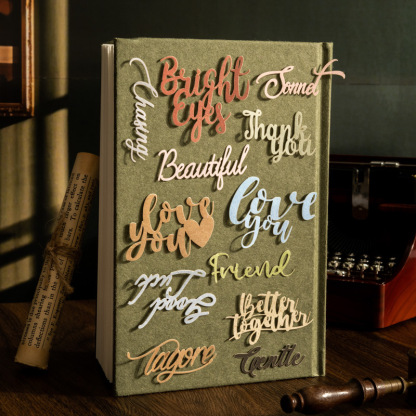 Bright
Eyes
Sonnet
Chasing
Thank
You
Beautiful
love
you
love
you
Friend
Good
Luck
Better
together
Tagore
Gentle